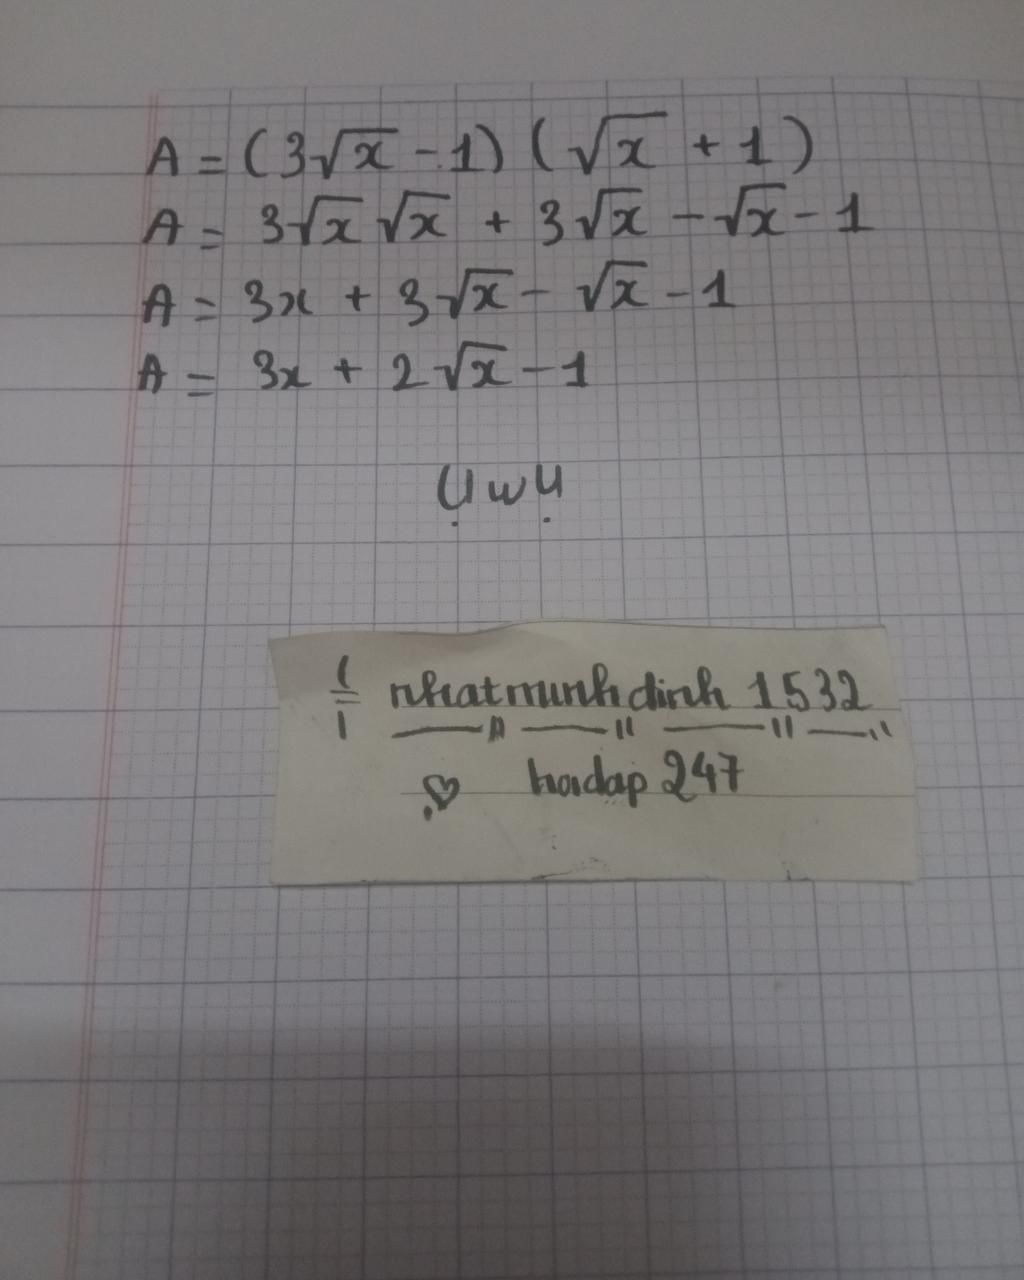 A = (3√x - 1) (√x + 1)
A = 3√x √x + 3√x - √x - 1
A = 3x + 3√x - √x - 1
A = 3x + 2√x - 1
UwU
nhatminhdinh 1532
hoidap 247